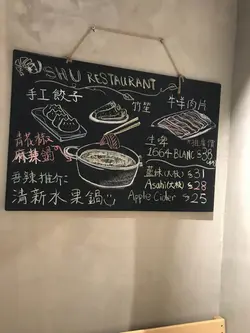 SHU RESTAURANT
手工餃子
竹笙
牛羊肉片
青花椒
麻辣鍋
生啤
1664 BLANC $38
藍妹(大枝) $31
Asahi(大枝) $28
Apple Cider $25
吾辣推介:
清新水果鍋